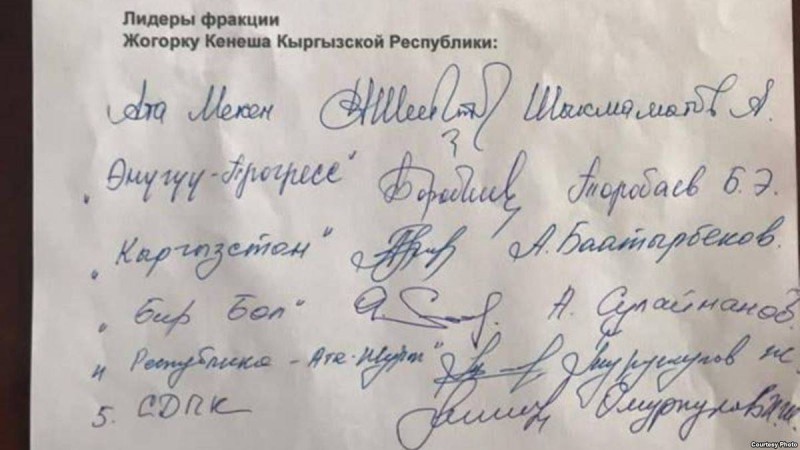 Лидеры фракции
Жогорку Кенеша Кыргызской Республики:
Ата Мекен Шыкмаматов А.
"Өнугуу-Прогресс" Торобаев Б.Э.
"Кыргызстан" А.Баатырбеков.
"Бир Бол" А. Сулайманов.
" Республика - Ата-Журт"
5. СДПК
Courtesy Photo